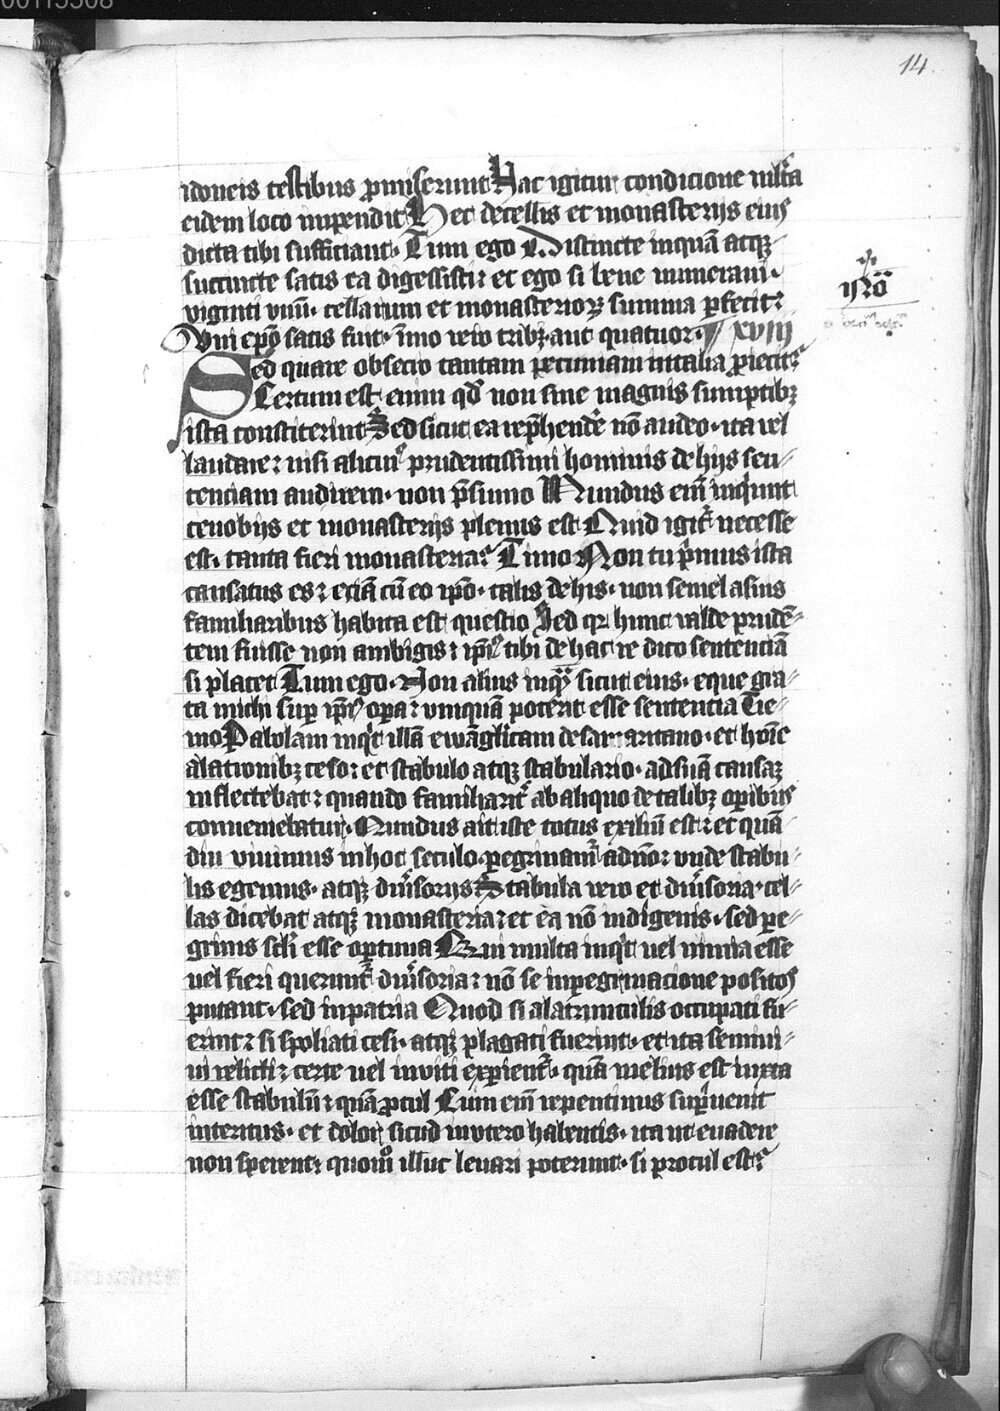 00113508
14.
idoneis testibus ꝓmiserunt Hac igitur condicione
eidem loco impendit Hec de cellis et monasterijs eiꝰ
dicta tibi sufficiant. Timo ego Distincte inquā atqꝫ
succincte satis ea digessisti: et ego si bene numeraui.
viginti vnū. cellarum et monasterioꝝ summa ꝑfecit:
Vni epō satis sunt. īmo vero tribꝫ aut quatuor. ¶ xviij
Sed quare obsecro tantam pecuniam in talia ꝓiecit
Certum est enim qd' non sine magnis sumptibꝫ
ista constiterint Sed sicut ea rep̄hendē nō audeo. ita vel
laudare: nisi alicuiꝰ prudentissimi hominis de hijs sen-
tenciam audirem. non p̄sumo Mundus em̄ inquiunt
cenobijs et monasterijs plenus est Quid igit' necesse
est. tanta fieri monasteria Timo Non tu p̄mus ista
causatus es: eciā cū eo ip̄o. talis de his. non semel a suis
familiaribus habita est questio Sed qr hunc valde prudē-
tem fuisse non ambigis: ip̄iꝰ tibi de hac re dico sentenciā
si placet Tum ego. Non alius inqͣ sicut eius. eque gra-
ta michi suꝑ ip̄iꝰ oꝑa: vmquā poterit esse sentencia Tie-
mo Pabolam inqͥt illā ewāglicam de samaritano. et hoīe
a lationibꝫ ceso: et stabulo atqꝫ stabulario. ad suā causaꝫ
inflectebat: quando familiarit' ab aliquo de talibꝫ oꝑibuꝰ
conueniebatur. Mundus ait iste totus exiliū est: et quā-
diu viuimus in hoc seculo. ꝑegrinamʳ a dn̄o: vnde stabu-
lis egemus. atqꝫ diu'sorijs Stabula vero et diu'soria. cel-
las dicebat atqꝫ monasteria: et ea nō indigenis. sed ꝑe-
grinis sc̄li esse optima Qui multa inqͥt vel nimia esse
vel fieri querunt' diu'soria: nō se in ꝑegrinacione positoꝰ
putant. sed in patria Quod si a latrunculis occupati fu-
erint: si spoliati cesi. atqꝫ plagati fuerint. et ita semiui-
ui relicti: certe vel inuiti exꝑient'. quā melius est iuxta
esse stabulū: quā ꝓcul Cum em̄ repentinus suꝑuenit
interitus. et dolor sicud in vtero habentis. ita vt euadere
non sperent: quoīo illuc leuari poterunt. si procul est